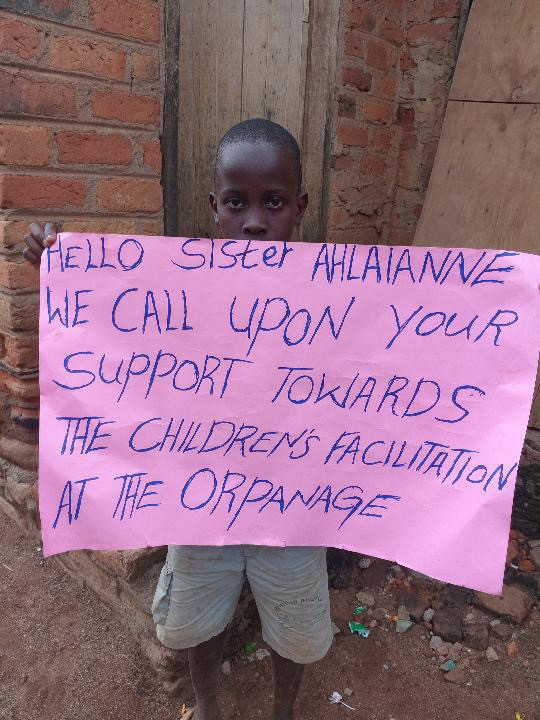 HELLO Sister AHLAIANNE
WE CALL UPON YOUR
SUPPORT TOWARDS
THE CHILDREN'S FACILITATION
AT THE ORPANAGE